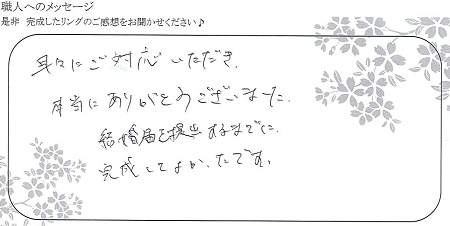 職人へのメッセージ
是非 完成したリングのご感想をお聞かせください♪
早々にご対応いただき、
本当にありがとうございました。
結婚届を提出するまでに、
完成してよかったです。